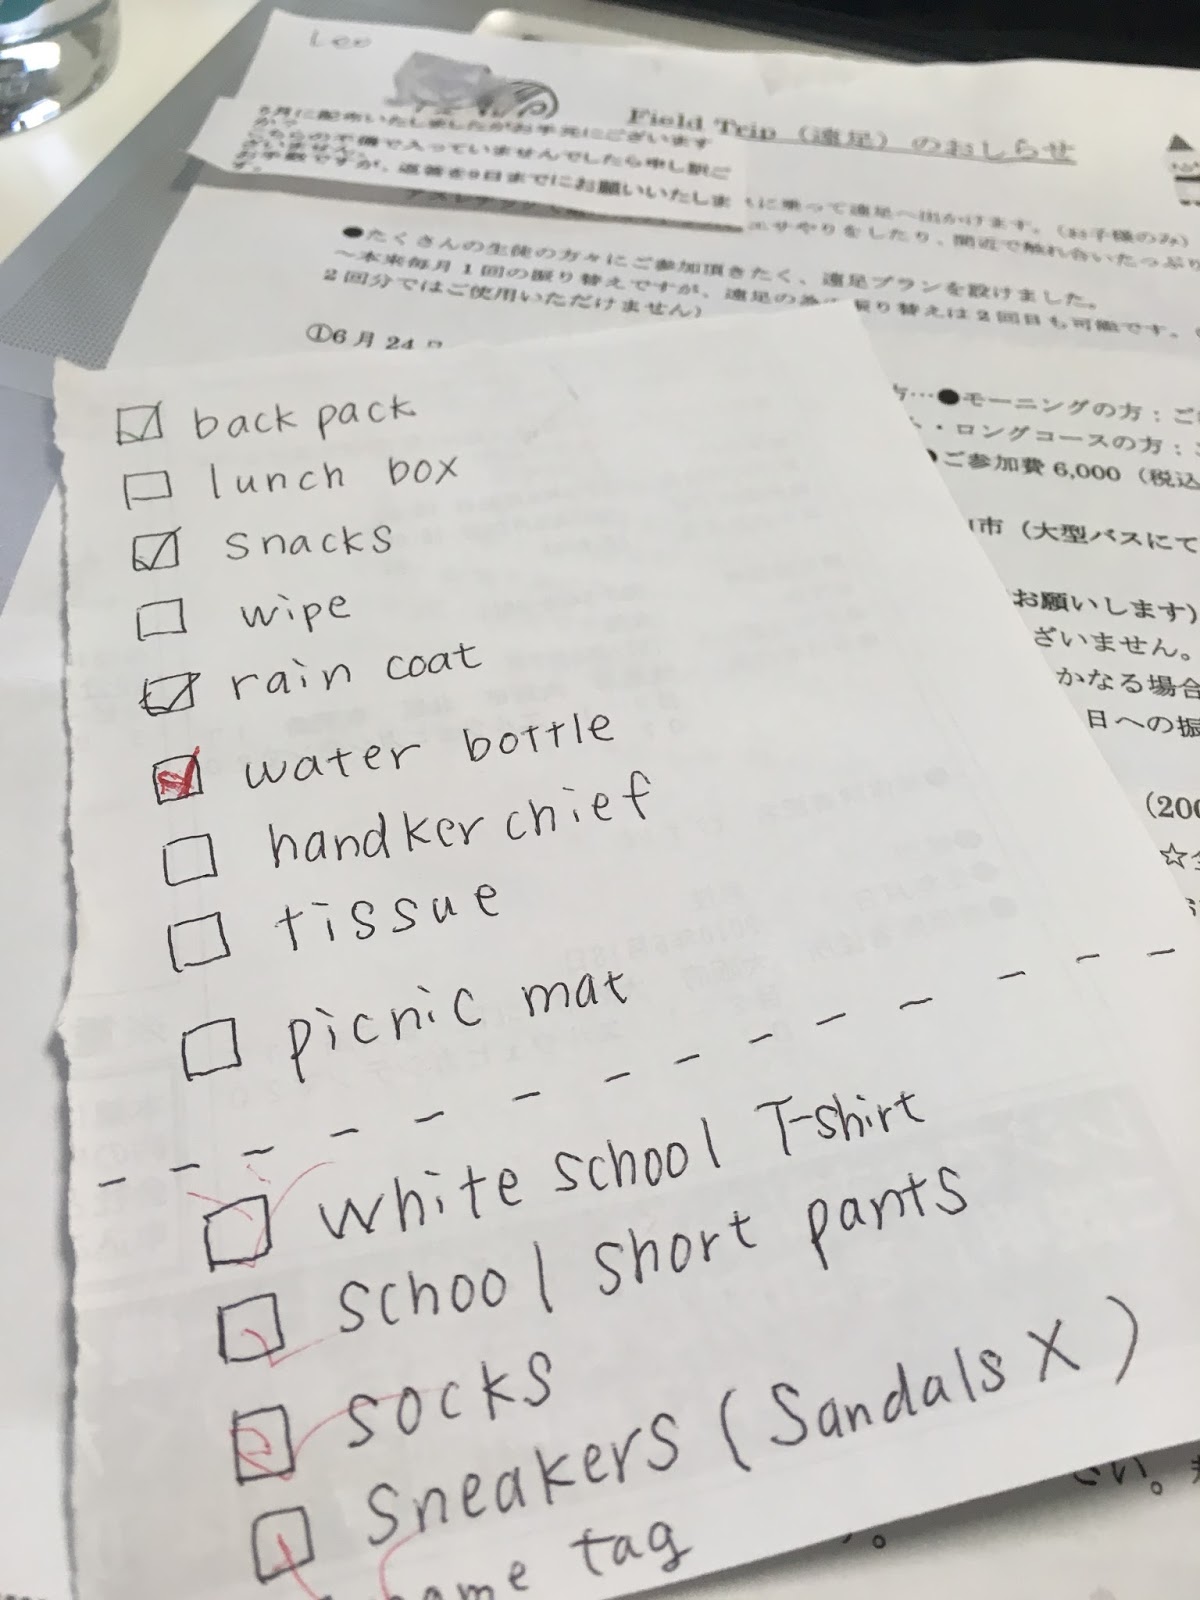 Leo
Field Trip (遠足) のおしらせ
5月に配布いたしましたがお手元にございます
か?
こちらの不備で入っていませんでしたら申し訳ご
ざいません。
お手数ですが、返答を9日までにお願いいたしま
す。
に乗って遠足へ出かけます。(お子様のみ)
エサやりをしたり、間近で触れ合いたっぷり
●たくさんの生徒の方々にご参加頂きたく、遠足プランを設けました。
~本来毎月1回の振り替えですが、遠足の為の振り替えは2回目も可能です。
2回分ではご使用いただけません)
①6月24日
方…●モーニングの方:ご
・ロングコースの方:
●ご参加費6,000(税込
市(大型バスにて
お願いします)
ざいません。
かなる場合
日への振
(200
☆全
back pack
lunch box
snacks
wipe
rain coat
water bottle
handkerchief
tissue
picnic mat
White school T-shirt
School short pants
Socks
Sneakers (Sandals X)
ame tag
さい。